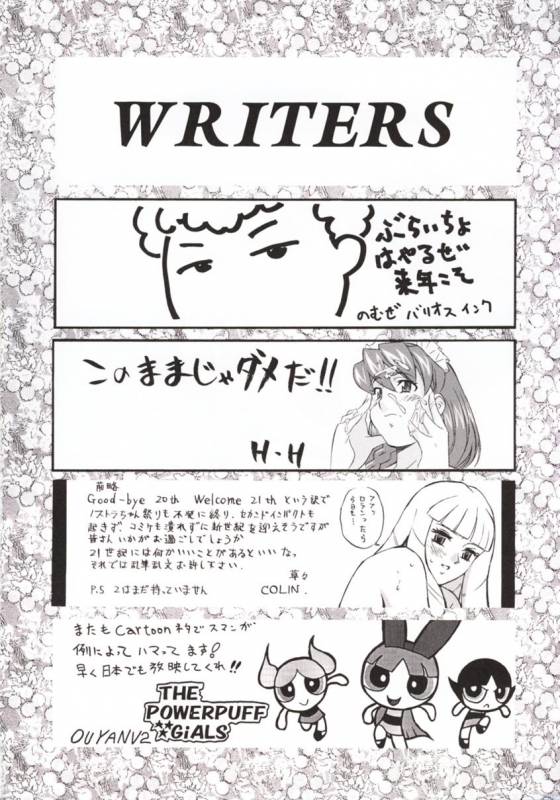 WRITERS
ぶらいちょ
はやるぜ
来年こそ
のむぜ バリオス インク
このままじゃダメだ!!
H・H
前略
Good-bye 20th Welcome 21th という訳で
ノストラちゃん祭りも不発に終り、セカンドインパクトも
起きず、コミケも潰れずに新世紀を迎えそうですが
皆さんいかがお過ごしでしょうか
21世紀には何かいいことがあるといいなっ
それでは乱筆乱文お許し下さい。
草々
P.S 2はまだ持っていません
COLIN.
またもCartoonネタでスマンが
例によってハマってます!
早く日本でも放映してくれ!!
THE
POWERPUFF
GiALS
OUYANV2